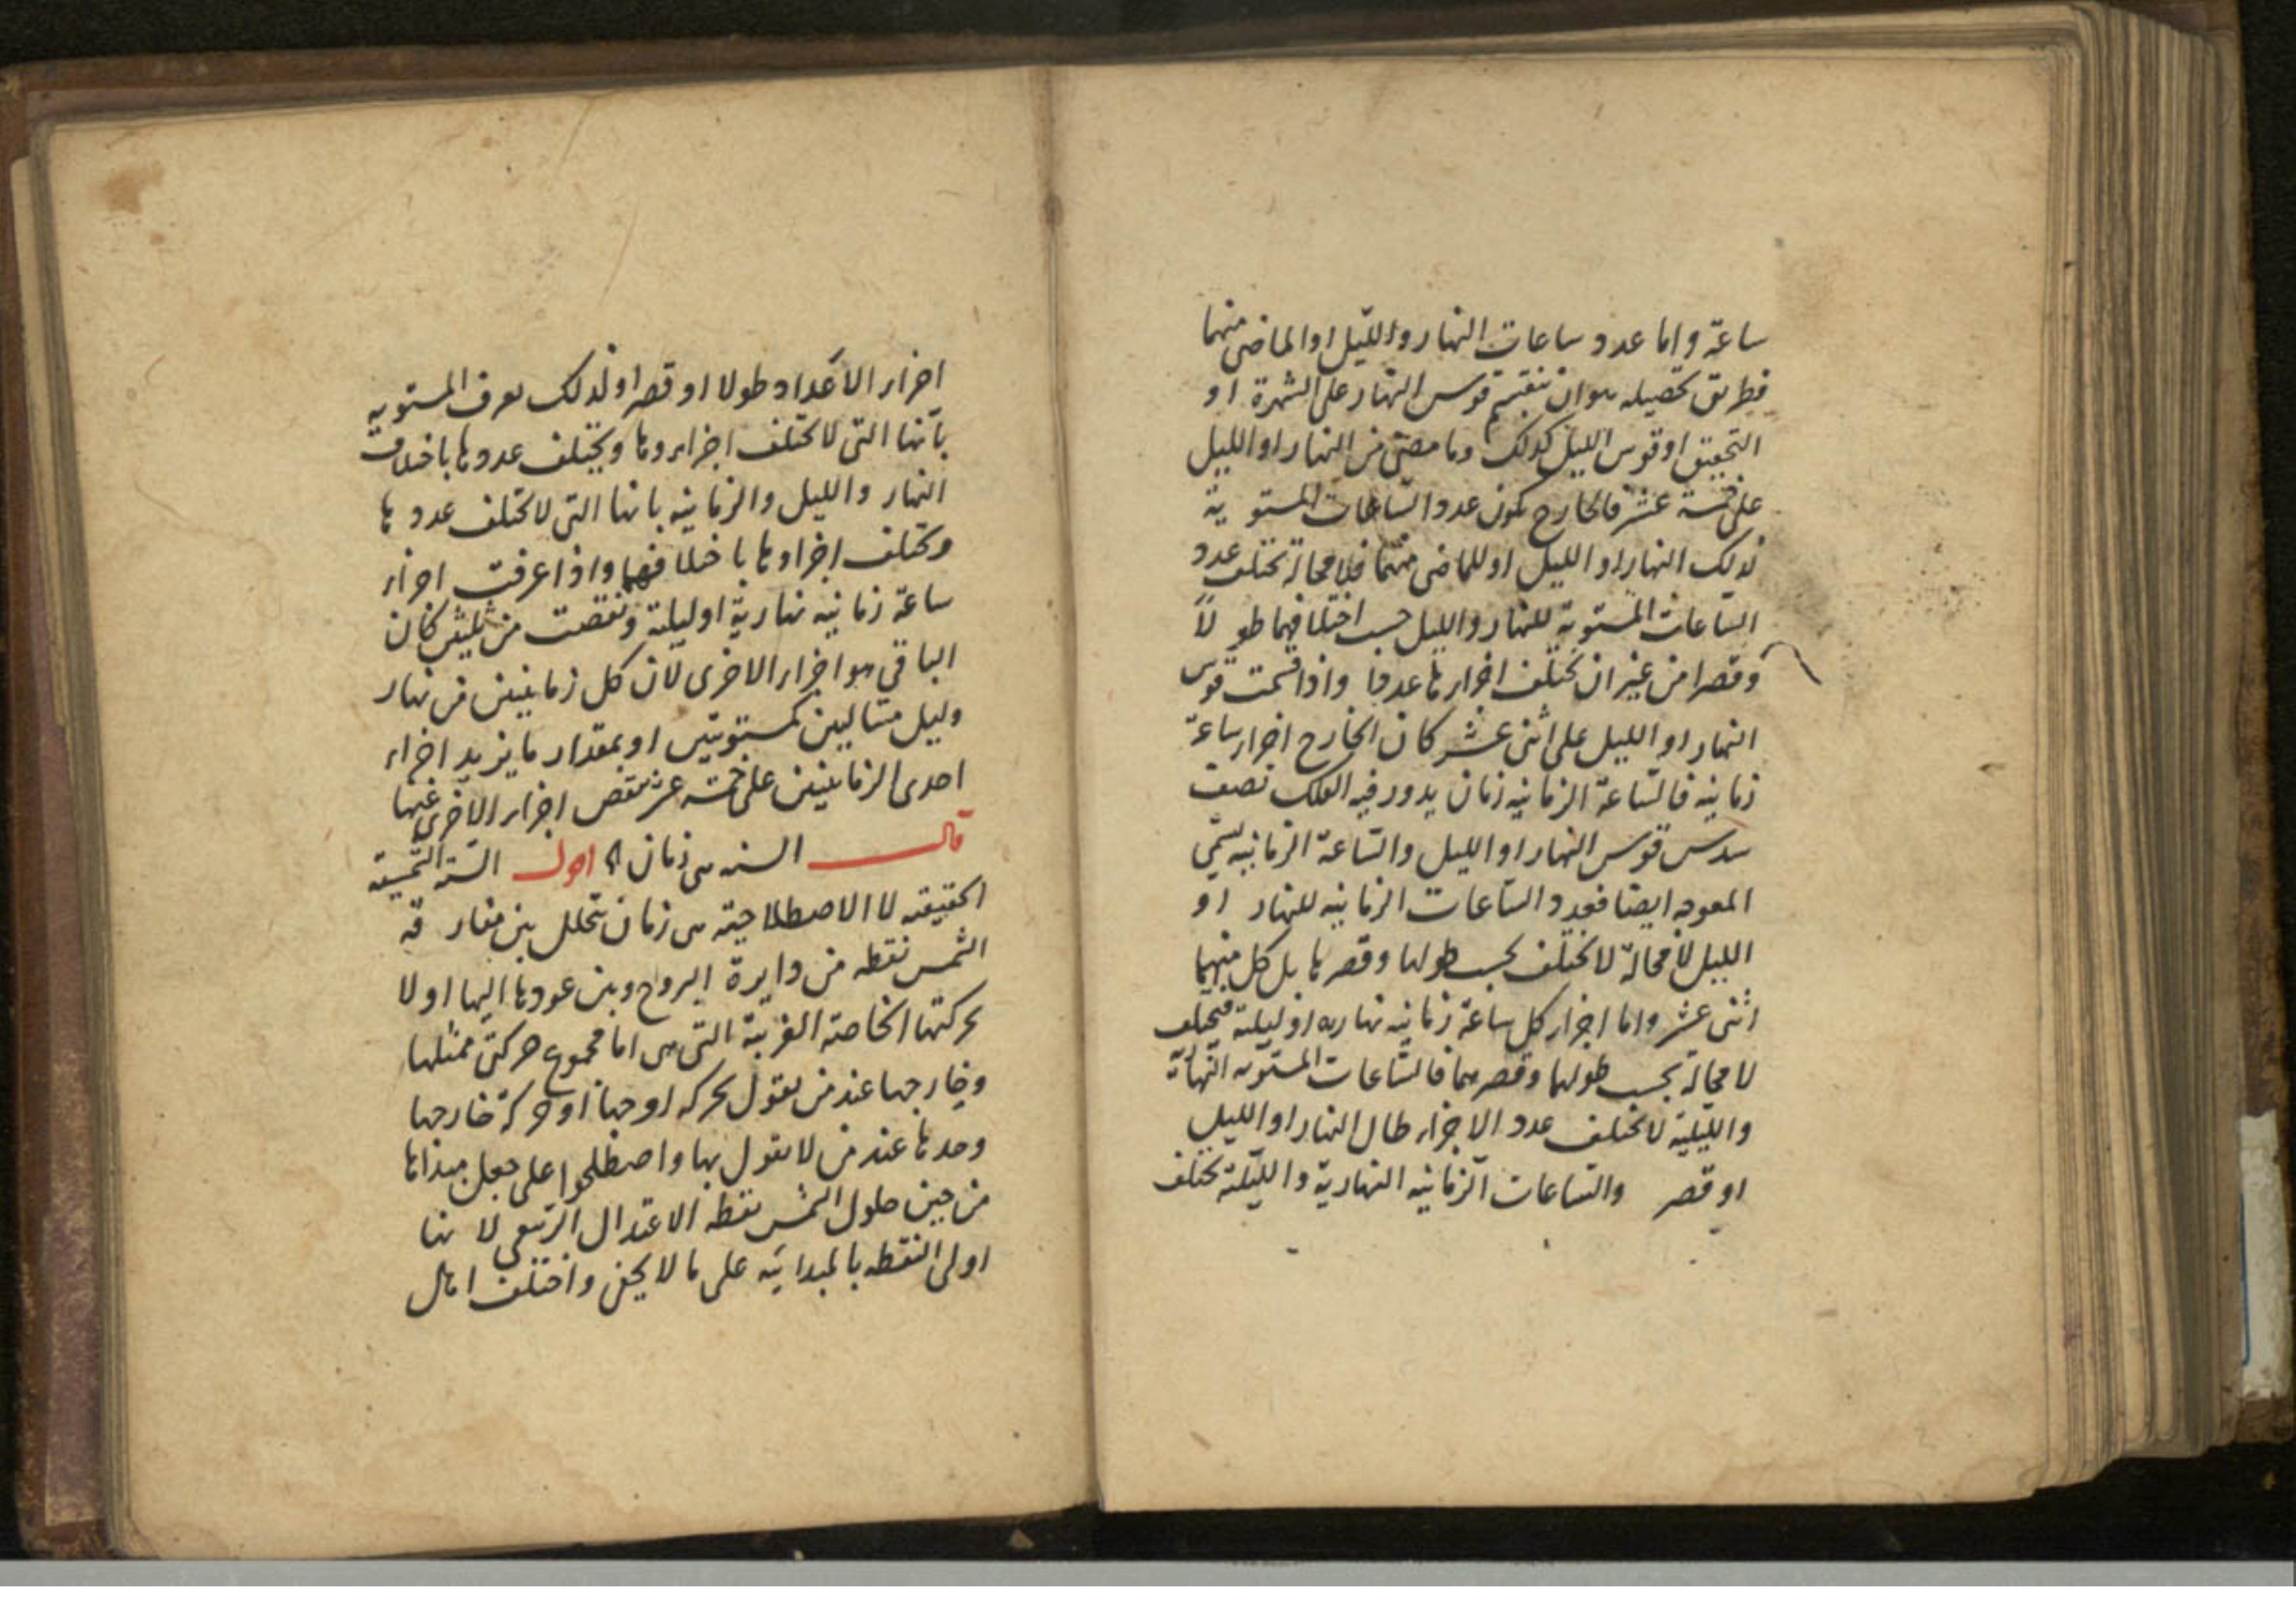 ساعة واما عدد ساعات النهار والليل او الماضى منهما
فطريق تحصيله هو ان تقسم قوس النهار على الشهرة او
التحقيق او قوس الليل كذلك وما مضى من النهار او الليل
على خمسة عشر فالخارج يكون عدد الساعات المستوية
لذلك النهار او الليل او للماضى منهما فلا محالة تختلف عدد
الساعات المستوية للنهار والليل حسب اختلافهما طولاً
وقصرا من غير ان تختلف اجزاءها عددا واذا قسمت قوس
النهار او الليل على اثنى عشر كان الخارج اجزاء ساعة
زمانيه فالساعة الزمانيه زمان يدور فيه الفلك نصف
سدس قوس النهار او الليل والساعة الزمانيه يسمى
المعوجه ايضا فعدد الساعات الزمانيه للنهار او
الليل لا محالة لا تختلف بحسب طولها وقصرها بل كل منهما
اثنى عشر واما اجزاء كل ساعة زمانيه نهاريه او ليلية فيختلف
لا محالة بحسب طولهما وقصرهما فالساعات المستويه النهارية
والليلية لا تختلف عدد الاجزاء طال النهار او الليل
او قصر والساعات الزمانيه النهارية والليلية تختلف
اجزاء الاعداد طولا او قصرا ولذلك يعرف المستويه
بانها التى لا تختلف اجزاءها ويختلف عددها باختلاف
النهار والليل والزمانيه بانها التى لا تختلف عددها
وتختلف اجزاءها باختلافهما واذا عرفت اجزاء
ساعة زمانيه نهارية او ليلية ونقصت من ثلثين كان
الباقى هو اجزاء الاخرى لان كل زمانيتين من نهار
وليل متتاليين كمستويتين او بمقدار ما يزيد اجزاء
احدى الزمانيتين على خمسة عشر تنقص اجزاء الاخرى عنها
قال السنه هى زمان اقول السنة الشمسية
الحقيقيه لا الاصطلاحيه هى زمان يتخلل بين مفارقه
الشمس نقطه من دايرة البروج وبين عودها اليها اولا
بحركتها الخاصة الغربية التى هى اما مجموع حركتى ممثلها
وخارجها عند من يقول بحركه اوجها او حركة خارجها
وحدها عند من لا يقول بها واصطلحوا على جعل مبداها
من حين حلول الشمس نقطه الاعتدال الربيعى لانها
اولى النقطه بالمبدائيه على ما لا يخفى واختلف اهل